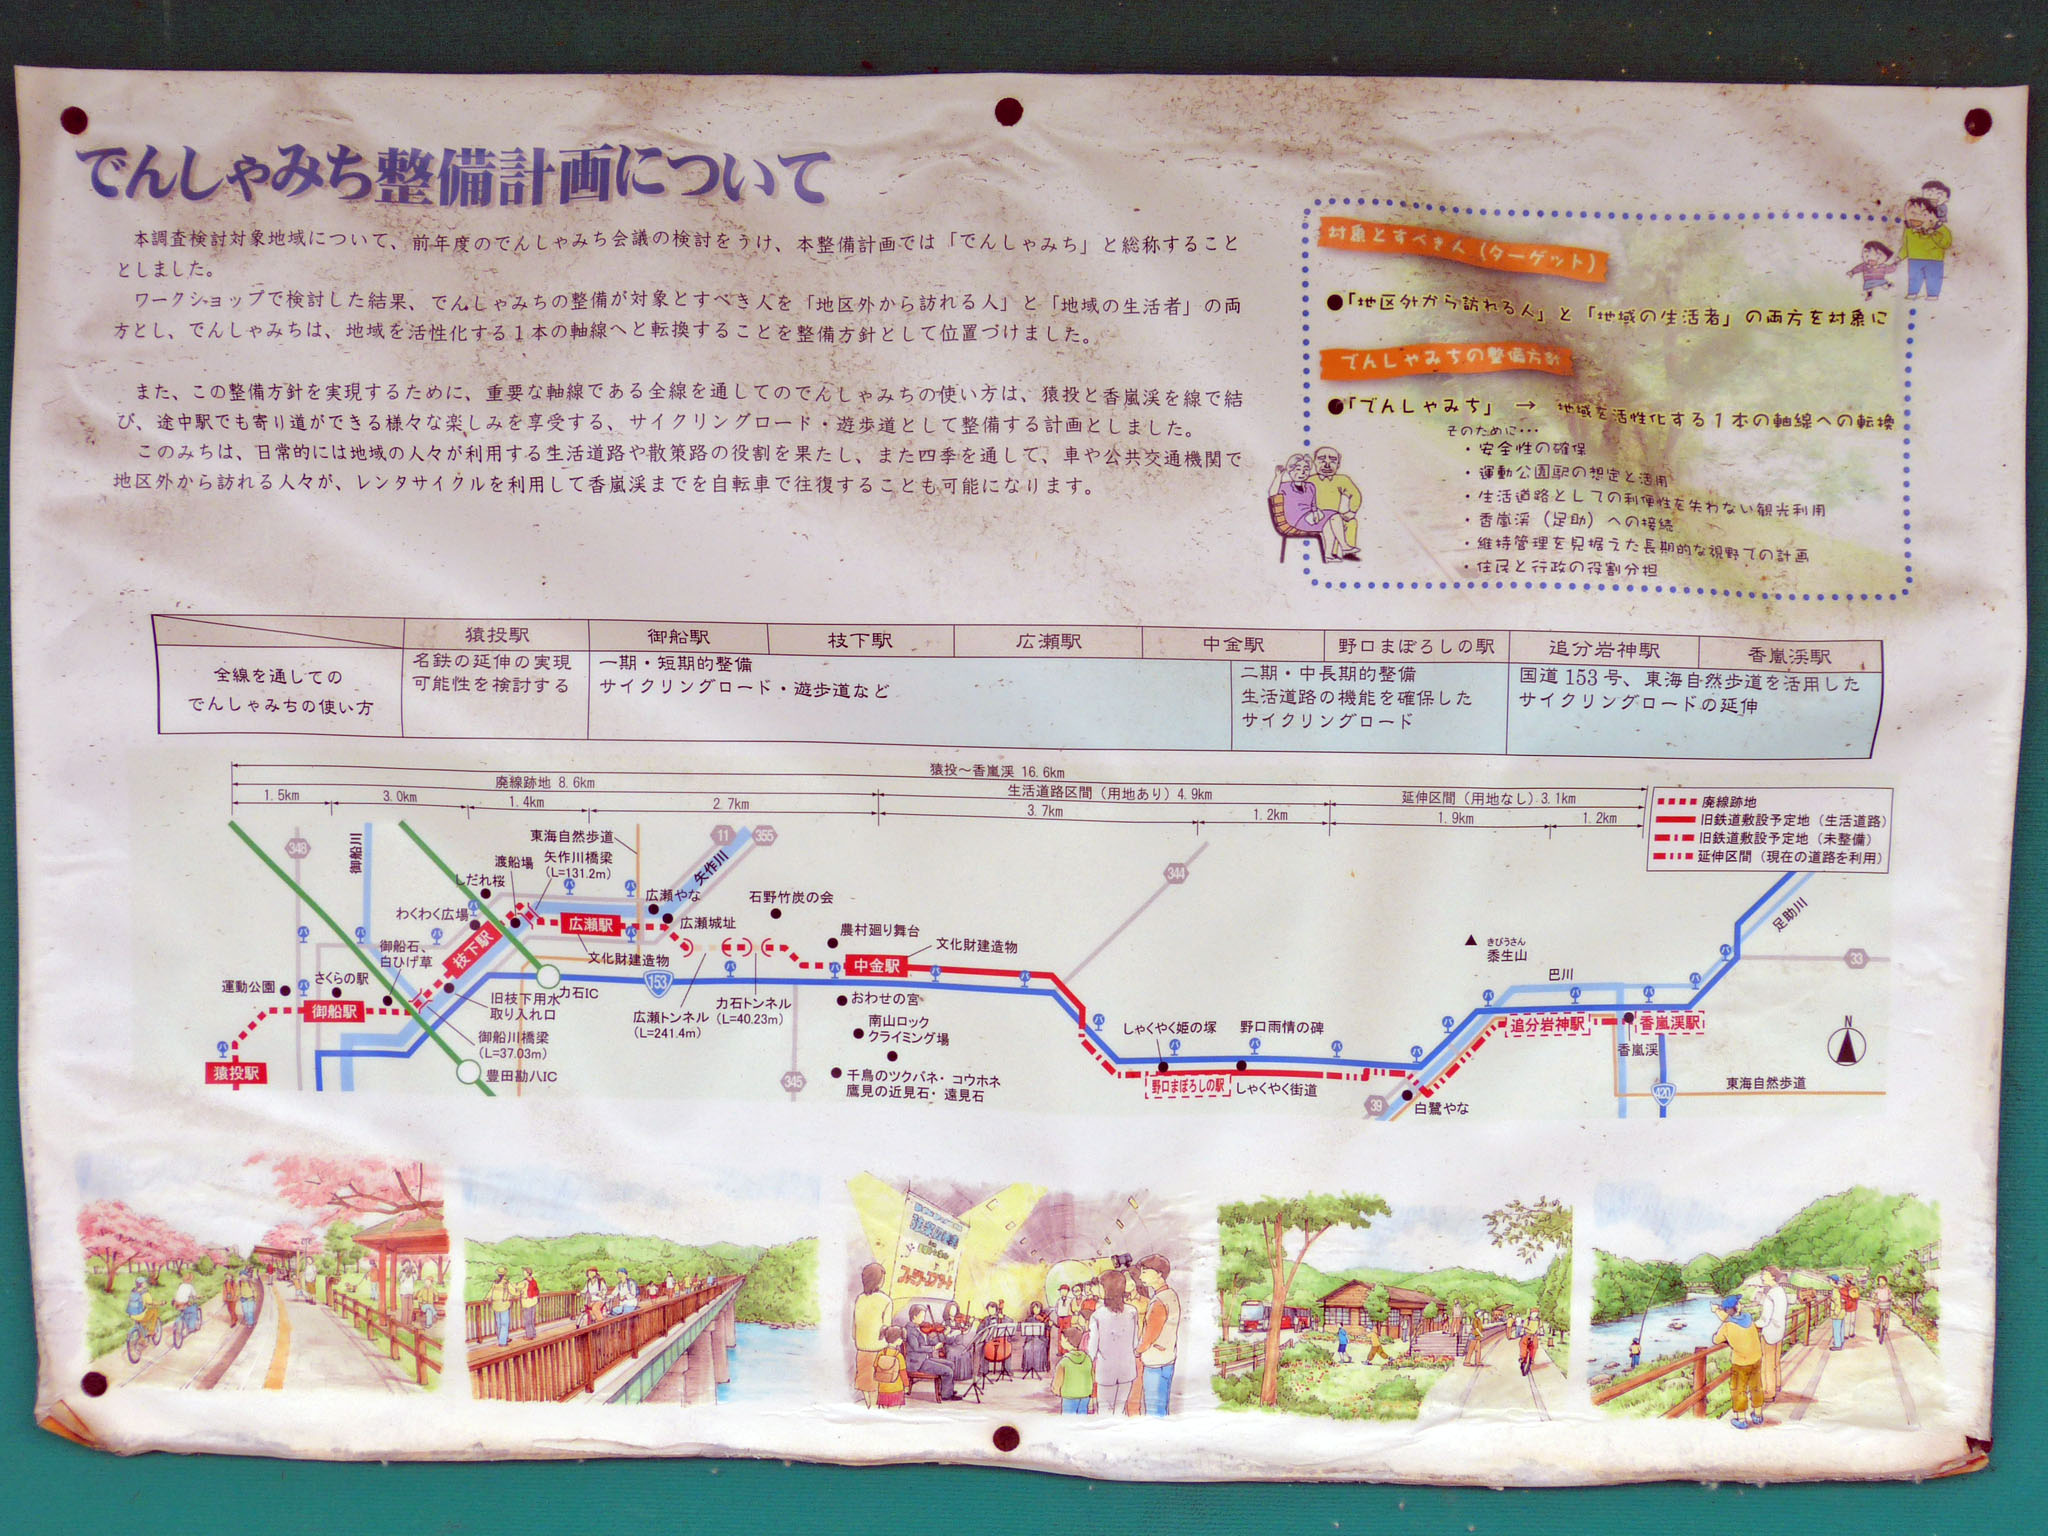 でんしゃみち整備計画について
本調査検討対象地域について、前年度のでんしゃみち会議の検討をうけ、本整備計画では「でんしゃみち」と総称すること
としました。
ワークショップで検討した結果、でんしゃみちの整備が対象とすべき人を「地区外から訪れる人」と「地域の生活者」の両
方とし、でんしゃみちは、地域を活性化する1本の軸線へと転換することを整備方針として位置づけました。
また、この整備方針を実現するために、重要な軸線である全線を通してのでんしゃみちの使い方は、猿投と香嵐渓を線で結
び、途中駅でも寄り道ができる様々な楽しみを享受する、サイクリングロード・遊歩道として整備する計画としました。
このみちは、日常的には地域の人々が利用する生活道路や散策路の役割を果たし、また四季を通して、車や公共交通機関で
地区外から訪れる人々が、レンタサイクルを利用して香嵐渓までを自転車で往復することも可能になります。
対象とすべき人(ターゲット)
●「地区外から訪れる人」と「地域の生活者」の両方を対象に
でんしゃみちの整備方針
●「でんしゃみち」 → 地域を活性化する1本の軸線への転換
そのために・・・
・安全性の確保
・運動公園駅の想定と活用
・生活道路としての利便性を失わない観光利用
・香嵐渓(足助)への接続
・維持管理を見据えた長期的な視野での計画
・住民と行政の役割分担
猿投駅 御船駅 枝下駅 広瀬駅 中金駅 野口まぼろしの駅 追分岩神駅 香嵐渓駅
全線を通しての
でんしゃみちの使い方
名鉄の延伸の実現
可能性を検討する
一期・短期的整備
サイクリングロード・遊歩道など
二期・中長期的整備
生活道路の機能を確保した
サイクリングロード
国道153号、東海自然歩道を活用した
サイクリングロードの延伸
猿投～香嵐渓 16.6km
廃線跡地 8.6km
生活道路区間(用地あり)4.9km
延伸区間(用地なし)3.1km
1.5km 3.0km 1.4km 2.7km 3.7km 1.2km 1.9km 1.2km
廃線跡地
旧鉄道敷設予定地(生活道路)
旧鉄道敷設予定地(未整備)
延伸区間(現在の道路を利用)
348
御船川
東海自然歩道
11
355
矢作川
渡船場
矢作川橋梁
(L=131.2m)
しだれ桜
わくわく広場
御船石、
白ひげ草
さくらの駅
運動公園
御船駅
猿投駅
枝下駅
広瀬駅
広瀬やな
広瀬城址
文化財建造物
旧枝下用水
取り入れ口
御船川橋梁
(L=37.03m)
力石IC
豊田勘八IC
153
広瀬トンネル
(L=241.4m)
力石トンネル
(L=40.23m)
石野竹炭の会
農村廻り舞台
文化財建造物
中金駅
おわせの宮
南山ロック
クライミング場
千鳥のツクバネ・コウホネ
鷹見の近見石・遠見石
345
344
しゃくやく姫の塚
野口雨情の碑
野口まぼろしの駅
しゃくやく街道
39
白鷺やな
きびうさん
黍生山
巴川
足助川
33
追分岩神駅
香嵐渓駅
香嵐渓
東海自然歩道
420
N